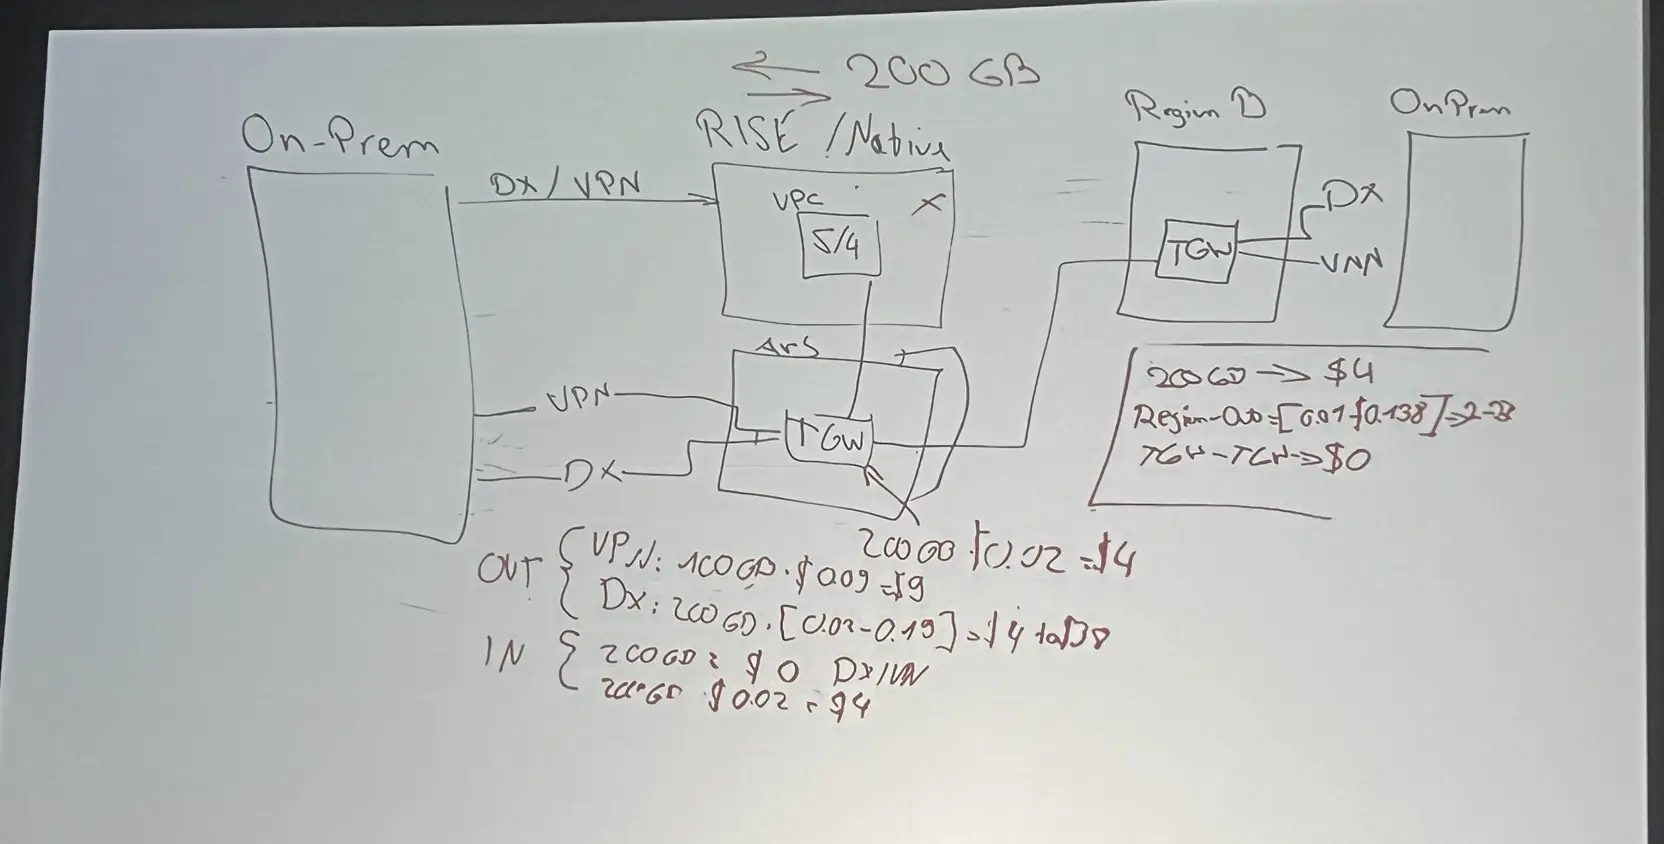 200 GB
On-Prem
RISE / Native
Region B
OnPrem
DX / VPN
VPC
X
S/4
DX
TGW
AWS
VPN
TGW
DX
200 GB → $4
TGW - TGW → $0
200 GB . $0.02 = $4
OUT { VPN: 100 GB . $0.09 = $9
DX: 200 GB . [0.02 - 0.19] = $4 to $38
IN { 200 GB : $0 DX/VPN
200 GB . $0.02 = $4